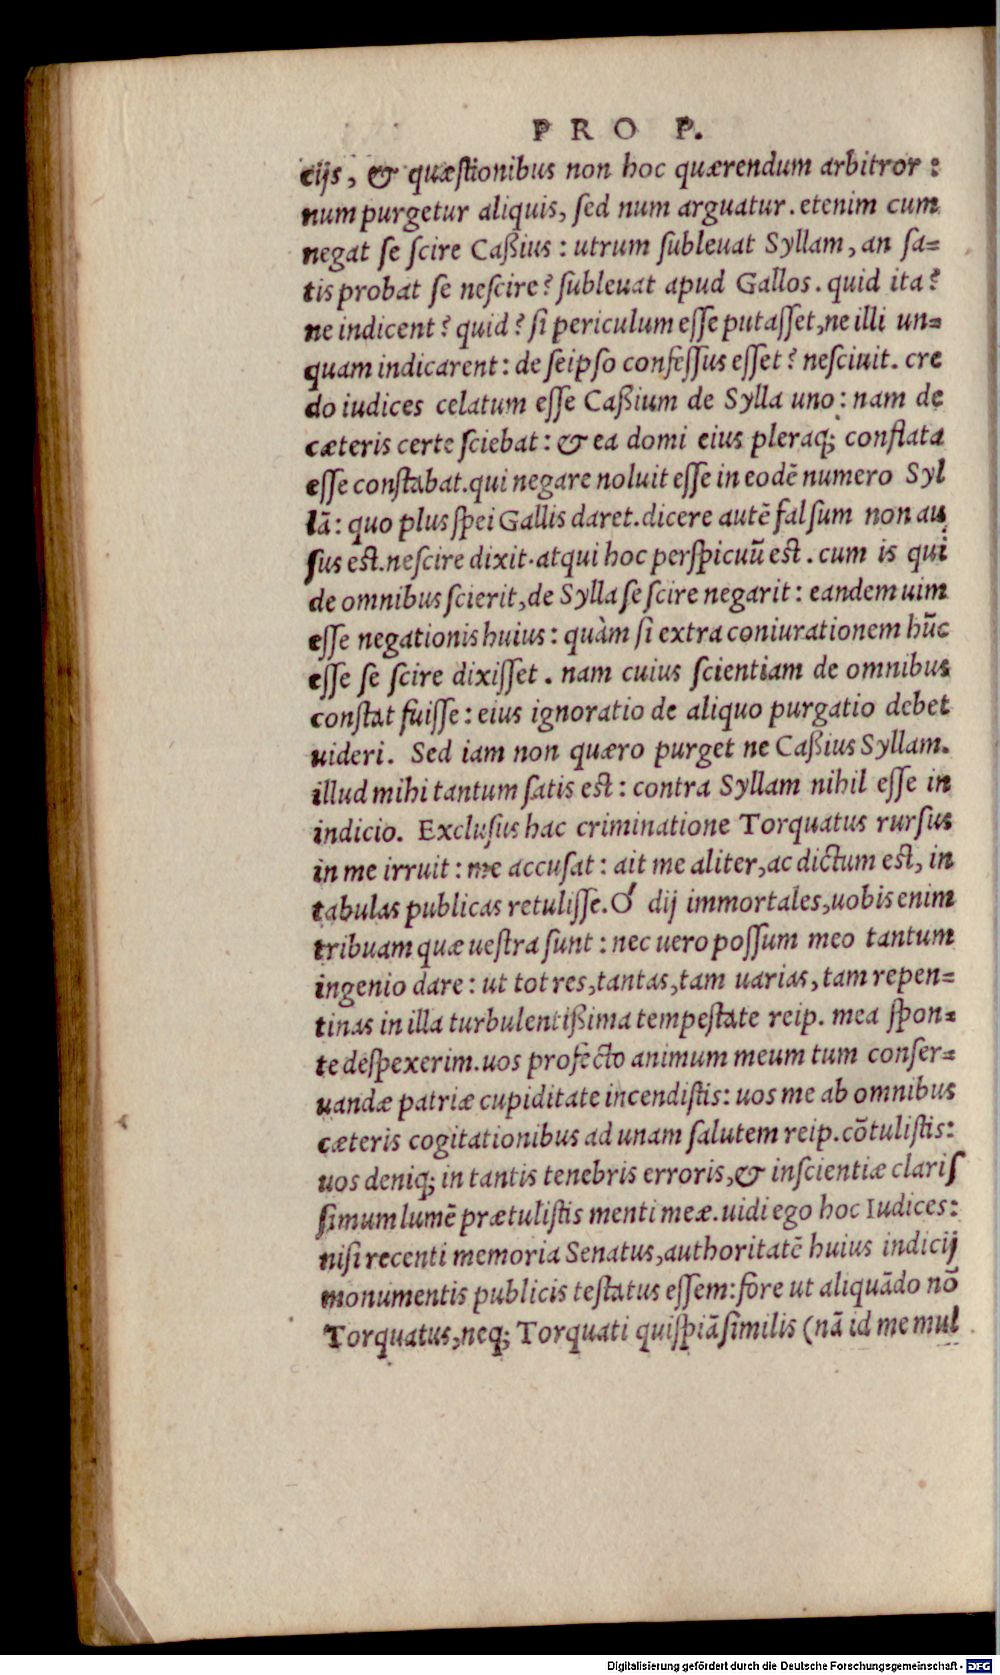 PRO P.
cijs, & quæstionibus non hoc quærendum arbitror :
num purgetur aliquis, sed num arguatur. etenim cum
negat se scire Caßius : utrum subleuat Syllam, an sa=
tis probat se nescire? subleuat apud Gallos. quid ita?
ne indicent? quid? si periculum esse putasset, ne illi un=
quam indicarent: de seipso confessus esset? nesciuit. cre
do iudices celatum esse Caßium de Sylla uno: nam de
cæteris certe sciebat: & ea domi eius pleraq; conflata
esse constabat. qui negare noluit esse in eodē numero Syl
lā: quo plus spei Gallis daret. dicere autē falsum non au
sus est. nescire dixit. atqui hoc perspicuū est. cum is qui
de omnibus scierit, de Sylla se scire negarit: eandem uim
esse negationis huius: quàm si extra coniurationem hūc
esse se scire dixisset. nam cuius scientiam de omnibus
constat fuisse: eius ignoratio de aliquo purgatio debet
uideri. Sed iam non quæro purget ne Caßius Syllam.
illud mihi tantum satis est: contra Syllam nihil esse in
indicio. Exclusus hac criminatione Torquatus rursus
in me irruit: me accusat: ait me aliter, ac dictum est, in
tabulas publicas retulisse. Ó dij immortales, uobis enim
tribuam quæ uestra sunt: nec uero possum meo tantum
ingenio dare: ut tot res, tantas, tam uarias, tam repen=
tinas in illa turbulentißima tempestate reip. mea spon=
te despexerim. uos profecto animum meum tum conser=
uandæ patriæ cupiditate incendistis: uos me ab omnibus
cæteris cogitationibus ad unam salutem reip. cōtulistis:
uos deniq; in tantis tenebris erroris, & inscientiæ claris
simum lumē prætulistis menti meæ. uidi ego hoc Iudices:
nisi recenti memoria Senatus, authoritatē huius indicij
monumentis publicis testatus essem: fore ut aliquādo nō
Torquatus, neq; Torquati quispiā similis (nā id me mul
Digitalisierung gefördert durch die Deutsche Forschungsgemeinschaft - DFG